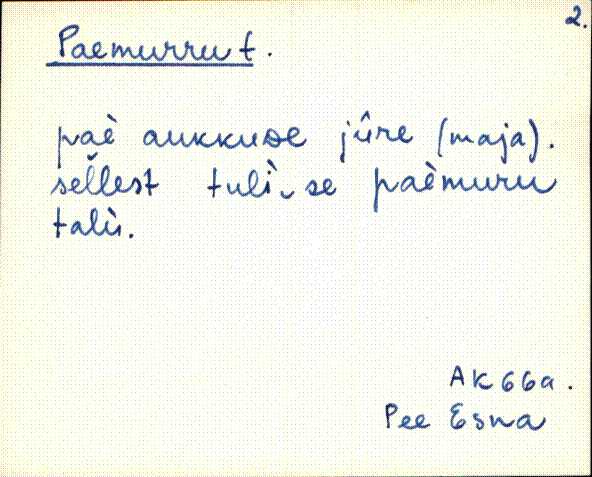 2.
Paemurru t.
paè aukkude jûre (maja).
sel̆lest tulì‿se paèmuru
talù.
AK66a.
Pee Esna